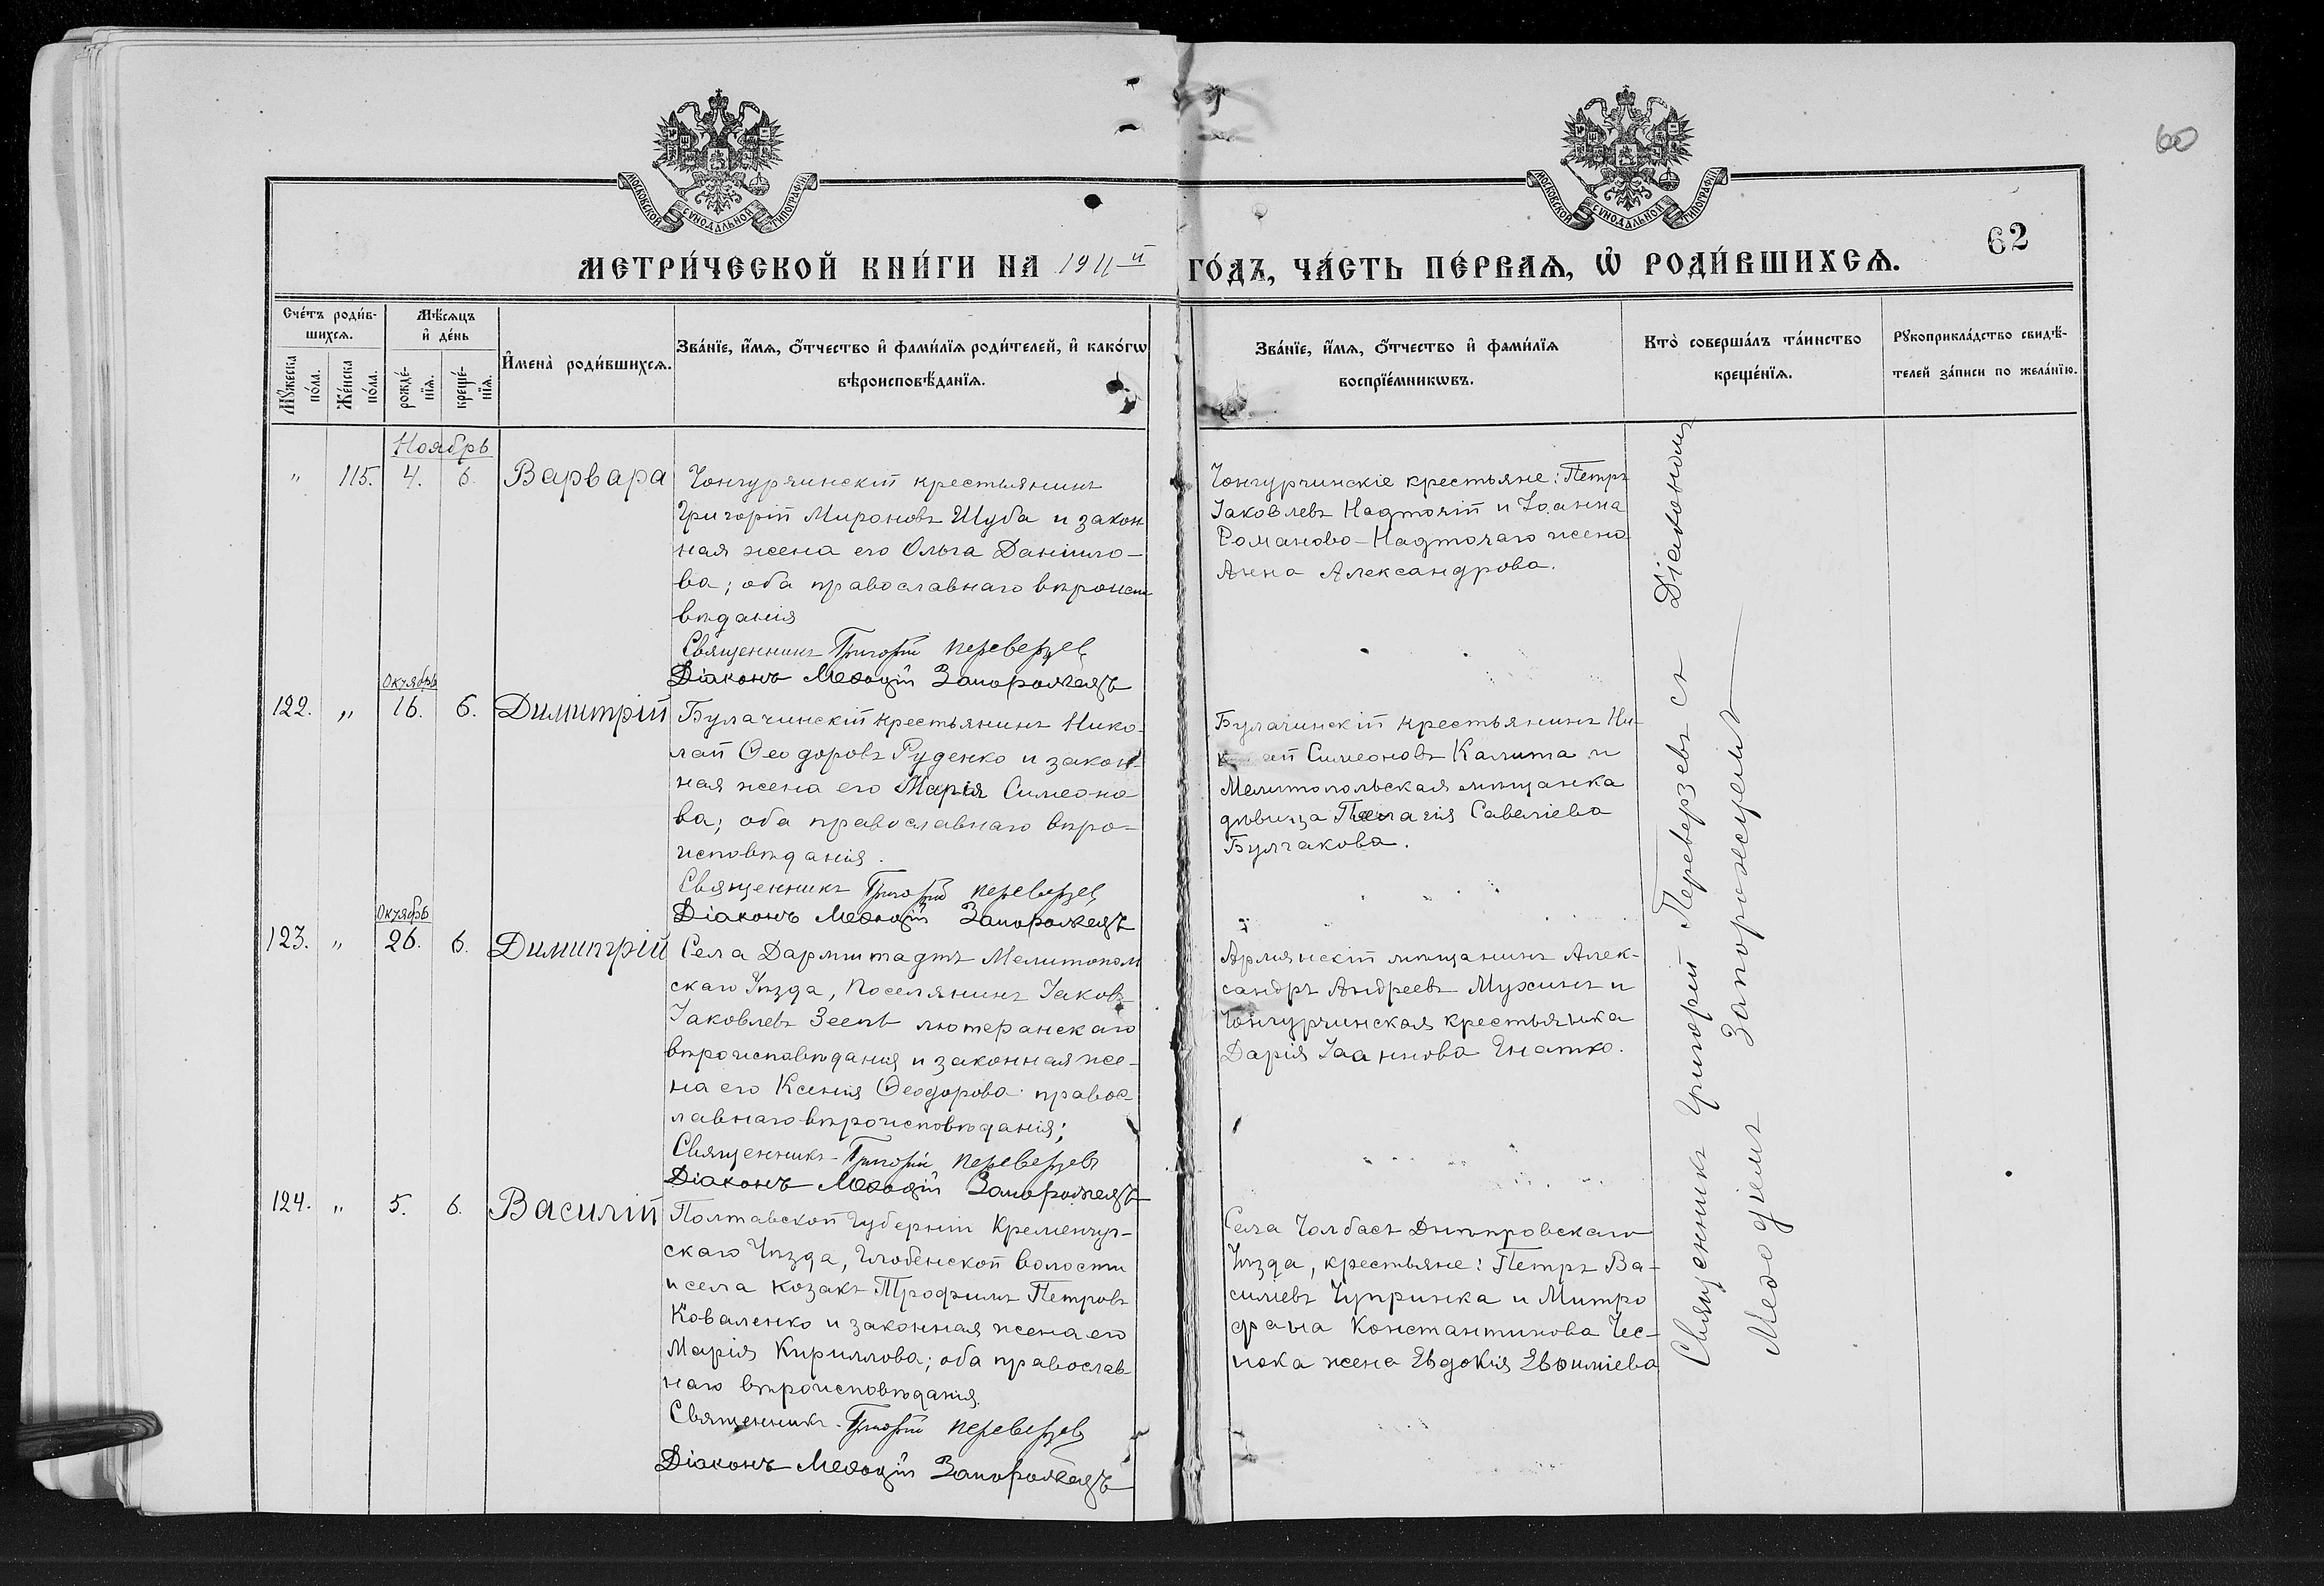 60
МОСКОВСКОЙ СУНОДАЛЬНОЙ ТИПОГРАФІИ
МОСКОВСКОЙ СУНОДАЛЬНОЙ ТИПОГРАФІИ
62
МЕТРИ́ЧЕСКОЙ КНИ́ГИ НА 1911й ГО́ДЪ, ЧА́СТЬ ПЕ́РВАѦ, Ѡ҆ РОДИ́ВШИХСѦ.
Сче́тъ роди́в-
шихсѧ.
Мꙋ́жеска по́ла.
Же́нска по́ла.
Мѣ́сѧцъ
и҆ де́нь
рожде́-
нїѧ.
креще́-
нїѧ.
И҆мена̀ роди́вшихсѧ.
Зва́нїе, и҆́мѧ, ѻ҆́тчество и҆ фами́лїѧ роди́телей, и҆ како́гѡ
вѣроисповѣ́данїѧ.
Зва́нїе, и҆́мѧ, ѻ҆́тчество и҆ фами́лїѧ
воспрїе́мникѡвъ.
Кто̀ соверша́лъ та́инство
креще́нїѧ.
Рꙋкоприкла́дство свидѣ́-
телей за́писи по жела́нїю.
Ноябрь
" 115. 4. 6. Варвара
Чонгурчинскій крестьянинъ
Григорій Мироновъ Шуба и закон
ная жена его Ольга Даніило-
ва; оба православнаго вѣроиспо
вѣданія
Священникъ Григорій Переверзев
Діаконъ Меѳодій Запорожецъ
Чонгурчинскіе крестьяне: Петръ
Іаковлевъ Надточій и Іоанна
Романово-Надточаго жена
Анна Александрова.
Октябрь
122. " 16. 6. Димитрій
Булачинскій крестьянинъ Нико-
лай Ѳеодоровъ Руденко и закон-
ная жена его Марія Симеоно
ва; оба православнаго вѣро-
исповѣданія.
Священникъ Григорій Переверзев
Діаконъ Меѳодій Запорожецъ
Булачинскій крестьянинъ Ни-
к ай Симеоновъ Калита и
Мелитопольская мѣщанка
дѣвица Пелагія Савеліева
Булгакова.
Октябрь
123. " 26. 6. Димитрій
Села Дармштадтъ Мелитополь
скаго Уѣзда, Поселянинъ Іаковъ
Іаковлевъ Зеель лютеранскаго
вѣроисповѣданія и законная же-
на его Ксенія Ѳеодорова правос-
лавнаго вѣроисповѣданія;
Священникъ Григорій Переверзевъ
Діаконъ Меѳодій Запорожецъ
Армянскій мѣщанинъ Алек-
сандръ Андреевъ Мухинъ и
Чонгурчинская крестьянка
Дарія Іоаннова Гнатко.
124. " 5. 6. Василій
Полтавской Губерніи Кременчуг-
скаго Уѣзда, Глобенской волости
и села козакъ Трофимъ Петровъ
Коваленко и законная жена его
Марія Кириллова; оба православ
наго вѣроисповѣданія.
Священникъ Григорій Переверзев
Діаконъ Меѳодій Запорожецъ
Села Чолбасъ Днѣпровскаго
Уѣзда, крестьяне: Петръ Ва-
силіевъ Чупринка и Митро
фана Константинова Чес-
нока жена Евдокія Евѳиміева
Священникъ Григорій Переверзевъ съ Діакономъ
Меѳодіемъ Запорожцемъ